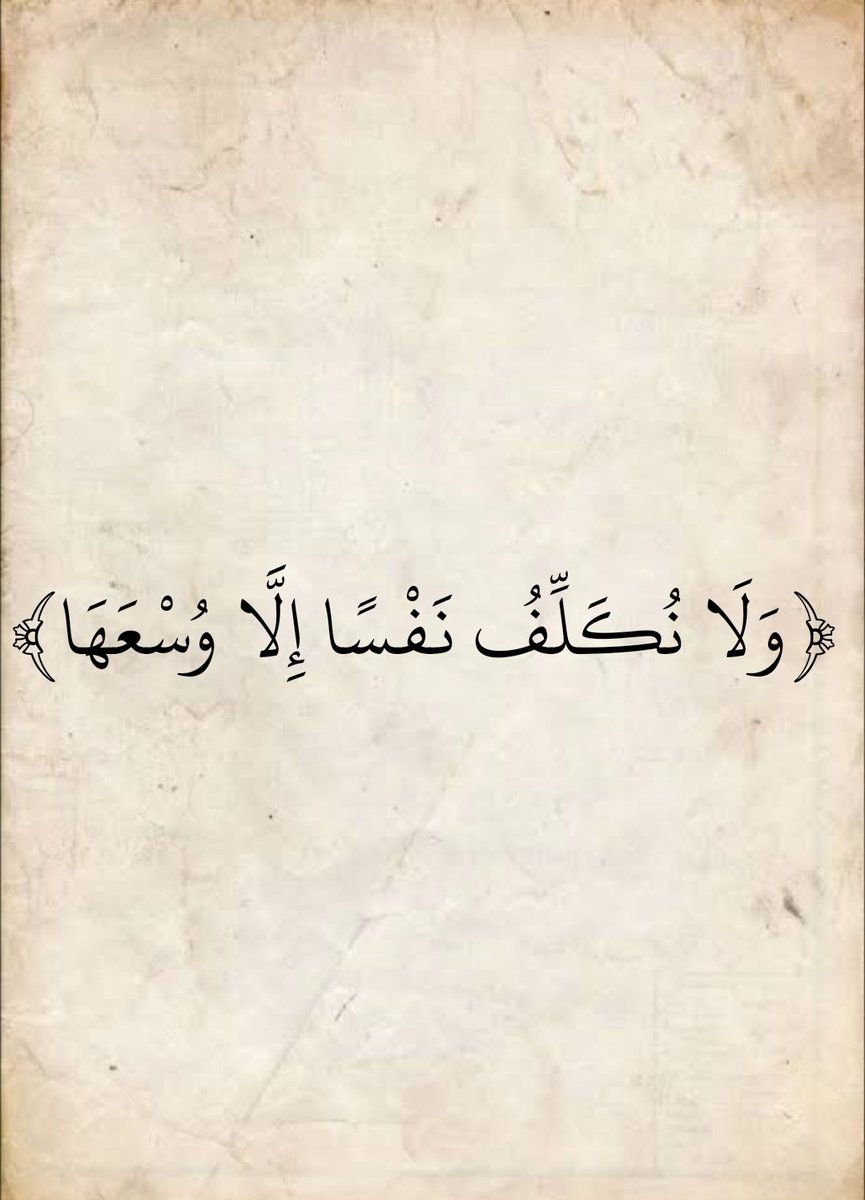 ﴿وَلَا نُكَلِّفُ نَفْسًا إِلَّا وُسْعَهَا﴾